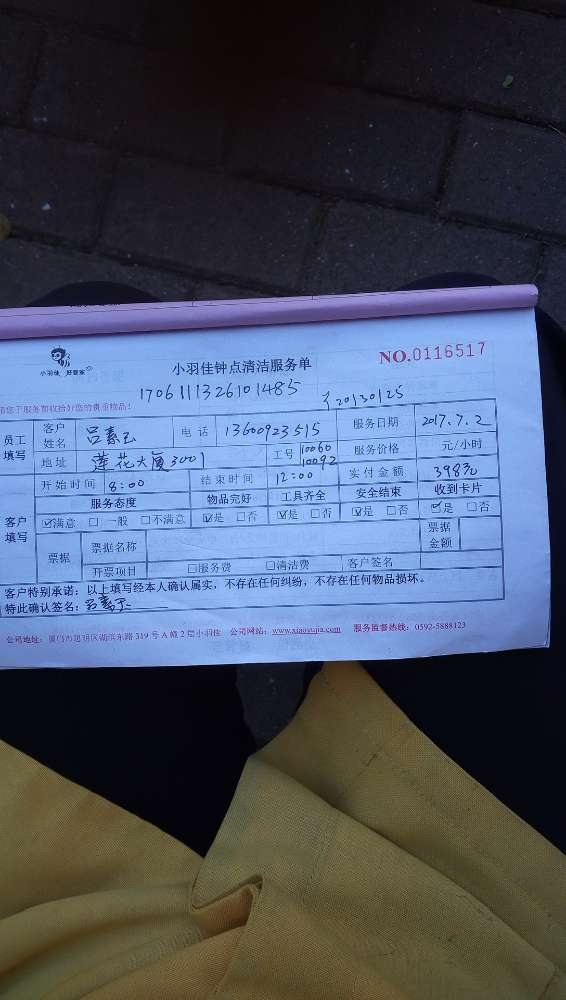 小羽佳 好管家
小羽佳钟点清洁服务单
NO.0116517
1706111326101485
20130125
员工填写
客户姓名 电话 13600923515 服务日期 2017.7.2
地址 莲花大厦3001 工号 10060 10092 服务价格 元/小时
开始时间 8:00 结束时间 12:00 实付金额 398元
客户填写
服务态度 物品完好 工具齐全 安全结束 收到卡片
☑满意 □一般 □不满意 ☑是 □否 ☑是 □否 ☑是 □否 ☑是 □否
票据 票据名称 票据金额
开票项目 □服务费 □清洁费 客户签名
客户特别承诺：以上填写经本人确认属实，不存在任何纠纷，不存在任何物品损坏。
特此确认签名：
公司地址：厦门市思明区湖滨东路319号A幢2层小羽佳 公司网站：www.xiaoyujia.com 服务监督热线：0592-5888123